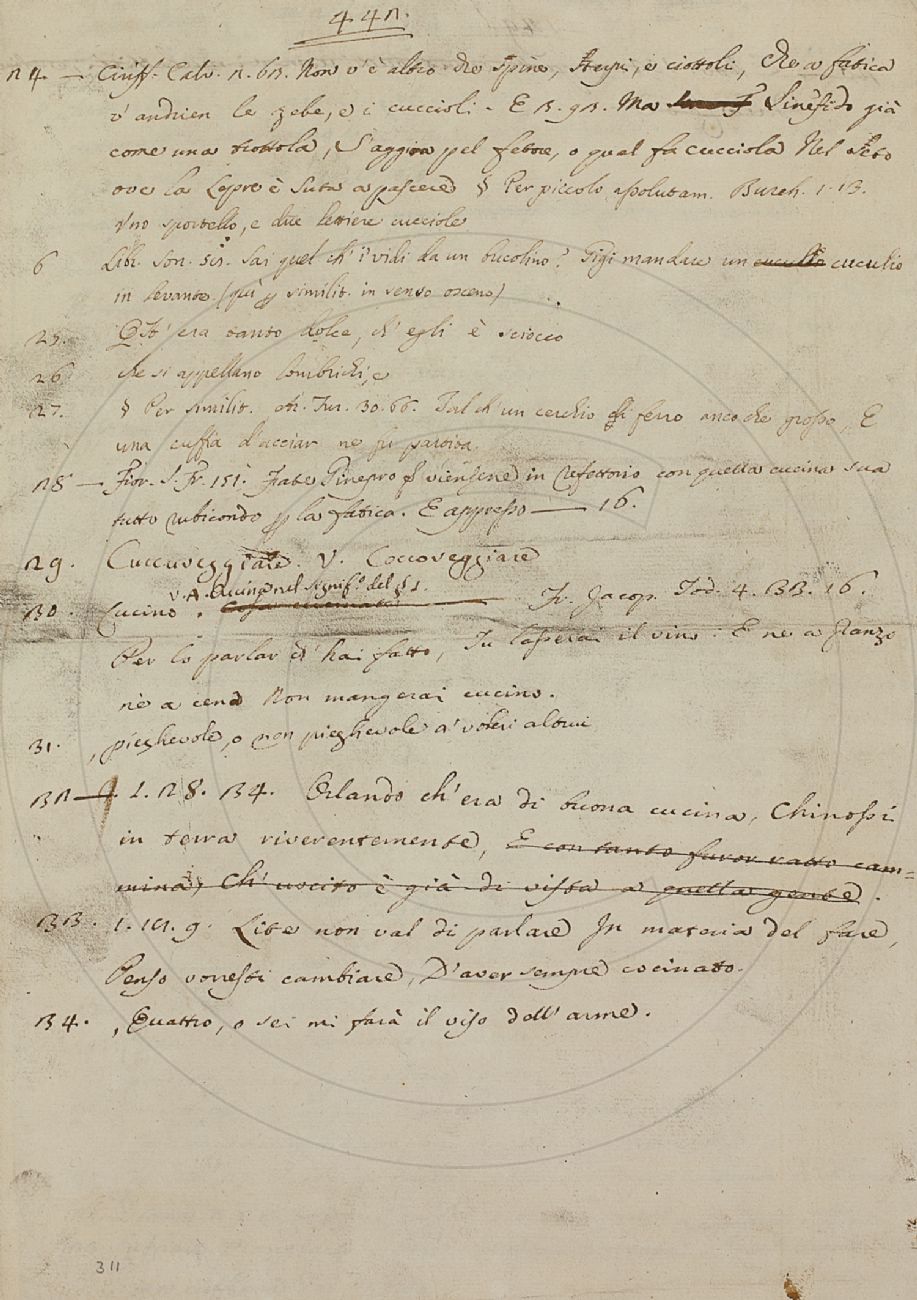 442.
24 — Ciriff. Calv. 2. 62. Non v'è altro che spine, sterpi, e ciottoli, Che a fatica
v'andrien le zebe, e i cuccioli. E 3. 93. Ma Sinèfido già
come una trottola, S'aggira pel fetore, o qual fa cucciola Nel
ove la Lepre è suta a pascere § Per piccolo assolutam. Burch. 1. 13.
Uno sportello, e due lettiere cucciole
6 Libr. Son. 51. Sai quel ch'i' vidi da un bucolino? Gigi mandare un cuculio
in levante (quì similit. in senso osceno)
25. era tanto dolce, ch'egli è sciocco
26 che si appellano lombrichi, e
27. § Per similit. Fur. 30. 66. Tal ch'un cerchio di ferro anco che grosso, E
una cuffia d'acciar ne fu partita.
28 — Fior. S. Fr. 151. Frate Ginepro viensene in refettorio con quella cucina sua
tutto rubicondo la fatica. E appresso — 16.
29. Cuccuveggiare. V. Coccoveggiare
V. A. Cucina nel signif.º del § 1.
30. Cucino. Fr. Jacop. Tod. 4. 33. 16.
Per lo parlar ch'hai fatto, Tu lasserai il vino: E ne a pranzo
nè a cena Non mangerai cucino.
31. , pieghevole, o non pieghevole a' voleri altrui
32 — 1. 28. 34. Orlando ch'era di buona cucina, Chinossi
in terra riverentemente, E con tanto furor ratto cam=
mina, Ch'uscito è già di vista a quella gente.
33. 1. 21. 9. Lite non val di parlare In materia del fare,
Penso vorresti cambiare, D'aver sempre cocinato.
34. , Quattro, o sei mi farà il viso dell'arme.
311